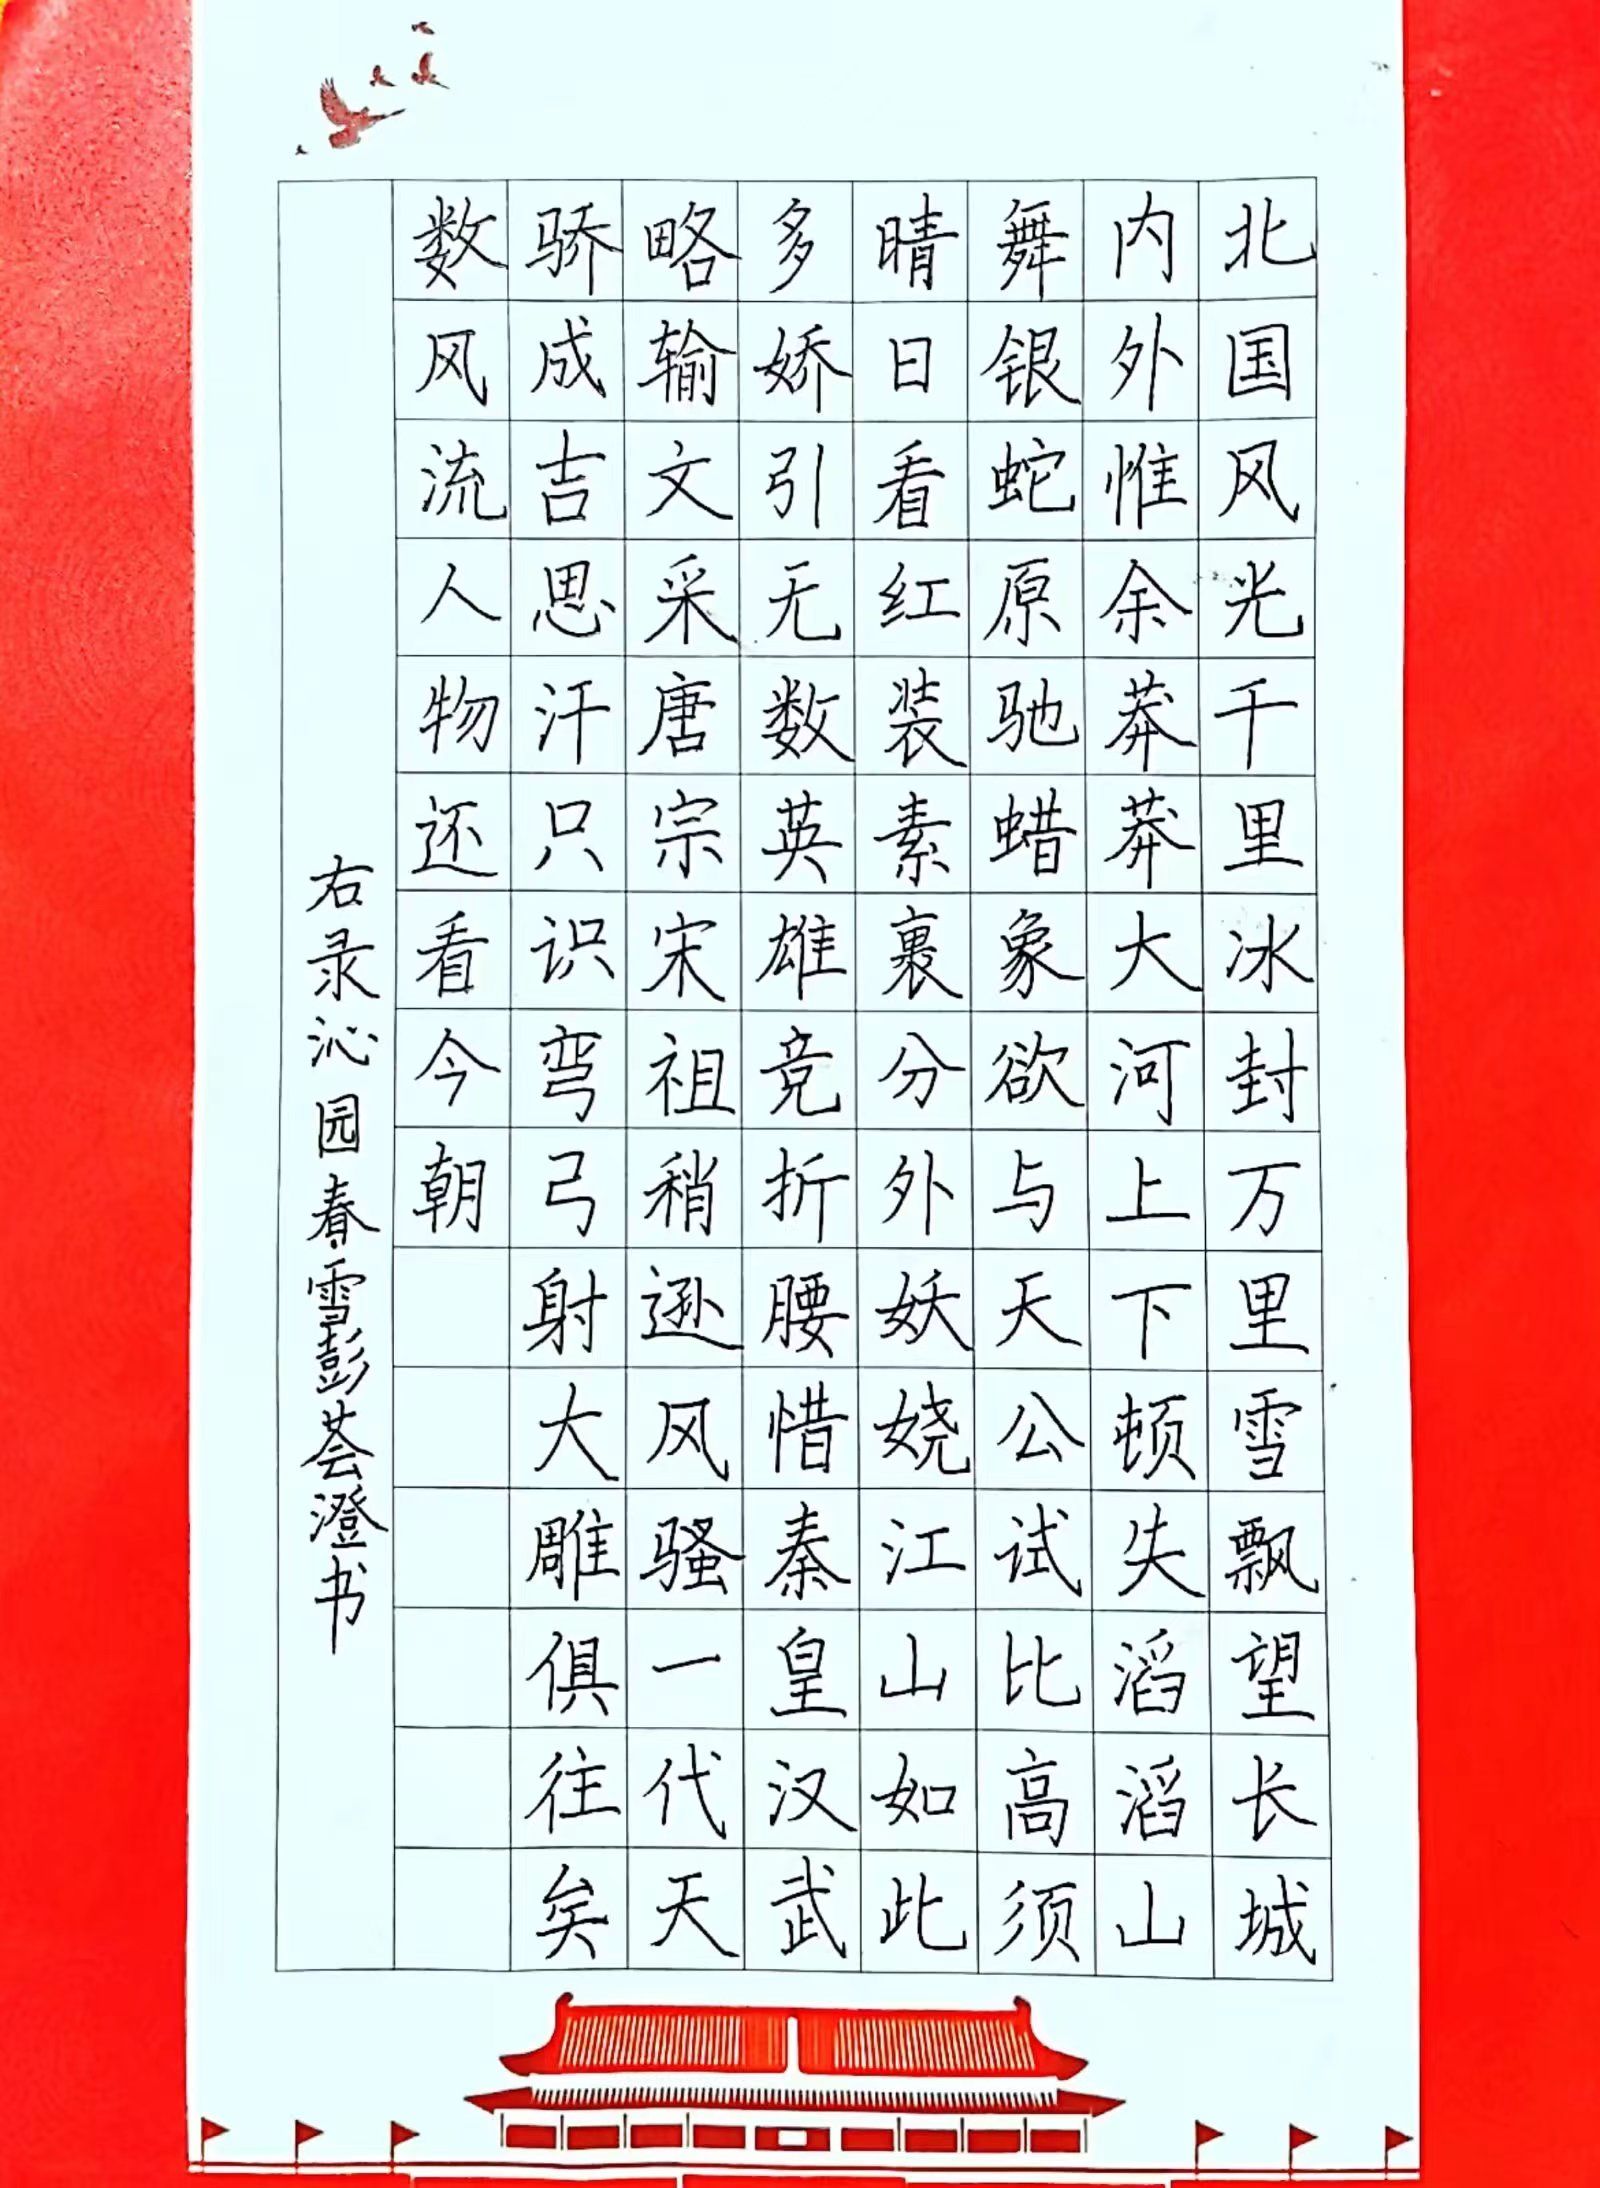 北国风光千里冰封万里雪飘望长城
内外惟余莽莽大河上下顿失滔滔山
舞银蛇原驰蜡象欲与天公试比高须
晴日看红装素裹分外妖娆江山如此
多娇引无数英雄竞折腰惜秦皇汉武
略输文采唐宗宋祖稍逊风骚一代天
骄成吉思汗只识弯弓射大雕俱往矣
数风流人物还看今朝
右录沁园春雪彭荟澄书